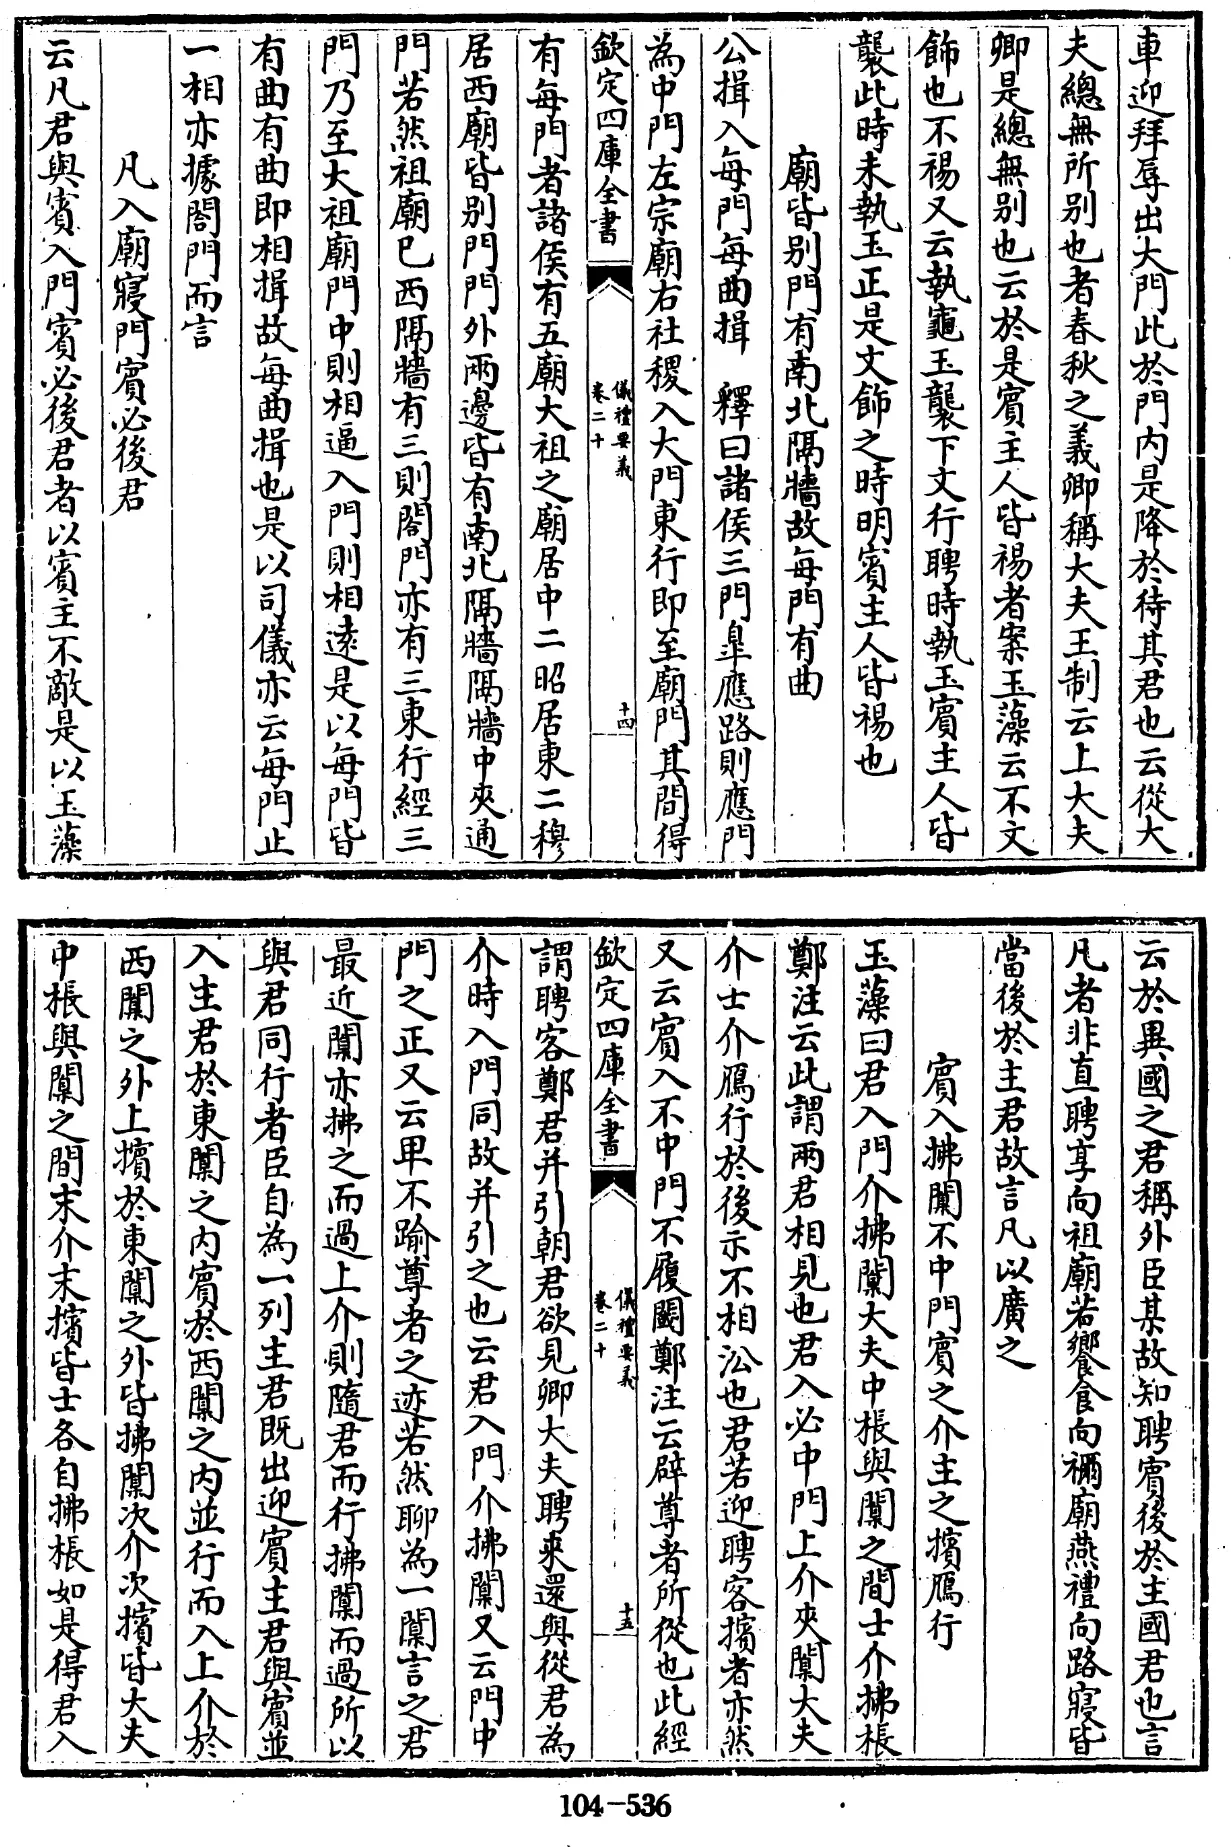 車迎拜辱出大門此於門内是降於待其君也云從大
夫總無所别也者春秋之義卿稱大夫王制云上大夫
卿是總無别也云於是賓主人皆裼者案玉藻云不文
飾也不裼又云執龜玉襲下文行聘時執玉賓主人皆
襲此時未執玉正是文飾之時明賓主人皆裼也
廟皆别門有南北隔牆故每門有曲
公揖入每門每曲揖 釋曰諸侯三門臯應路則應門
為中門左宗廟右社稷入大門東行即至廟門其間得
欽定四庫全書 儀禮要義 卷二十 十四
有每門者諸侯有五廟大祖之廟居中二昭居東二穆
居西廟皆别門門外兩邊皆有南北隔牆隔牆中夾通
門若然祖廟巳西隔牆有三則閤門亦有三東行經三
門乃至大祖廟門中則相逼入門則相逺是以每門皆
有曲有曲即相揖故每曲揖也是以司儀亦云每門止
一相亦據閤門而言
凡入廟寢門賓必後君
云凡君與賓入門賓必後君者以賓主不敵是以玉藻
云於異國之君稱外臣某故知聘賓後於主國君也言
凡者非直聘享向祖廟若饗食向禰廟燕禮向路寢皆
當後於主君故言凡以廣之
賓入拂闑不中門賓之介主之擯鴈行
玉藻曰君入門介拂闑大夫中棖與闑之間士介拂棖
鄭注云此謂兩君相見也君入必中門上介夾闑大夫
介士介鴈行於後示不相沿也君若迎聘客擯者亦然
又云賓入不中門不履閾鄭注云辟尊者所從也此經
欽定四庫全書 儀禮要義 卷二十 十五
謂聘客鄭君并引朝君欲見卿大夫聘來還與從君為
介時入門同故并引之也云君入門介拂闑又云門中
門之正又云卑不踰尊者之迹若然聊為一闑言之君
最近闑亦拂之而過上介則隨君而行拂闑而過所以
與君同行者臣自為一列主君既出迎賓主君與賓並
入主君於東闑之内賓於西闑之内並行而入上介於
西闑之外上擯於東闑之外皆拂闑次介次擯皆大夫
中棖與闑之間末介末擯皆士各自拂棖如是得君入
104-536